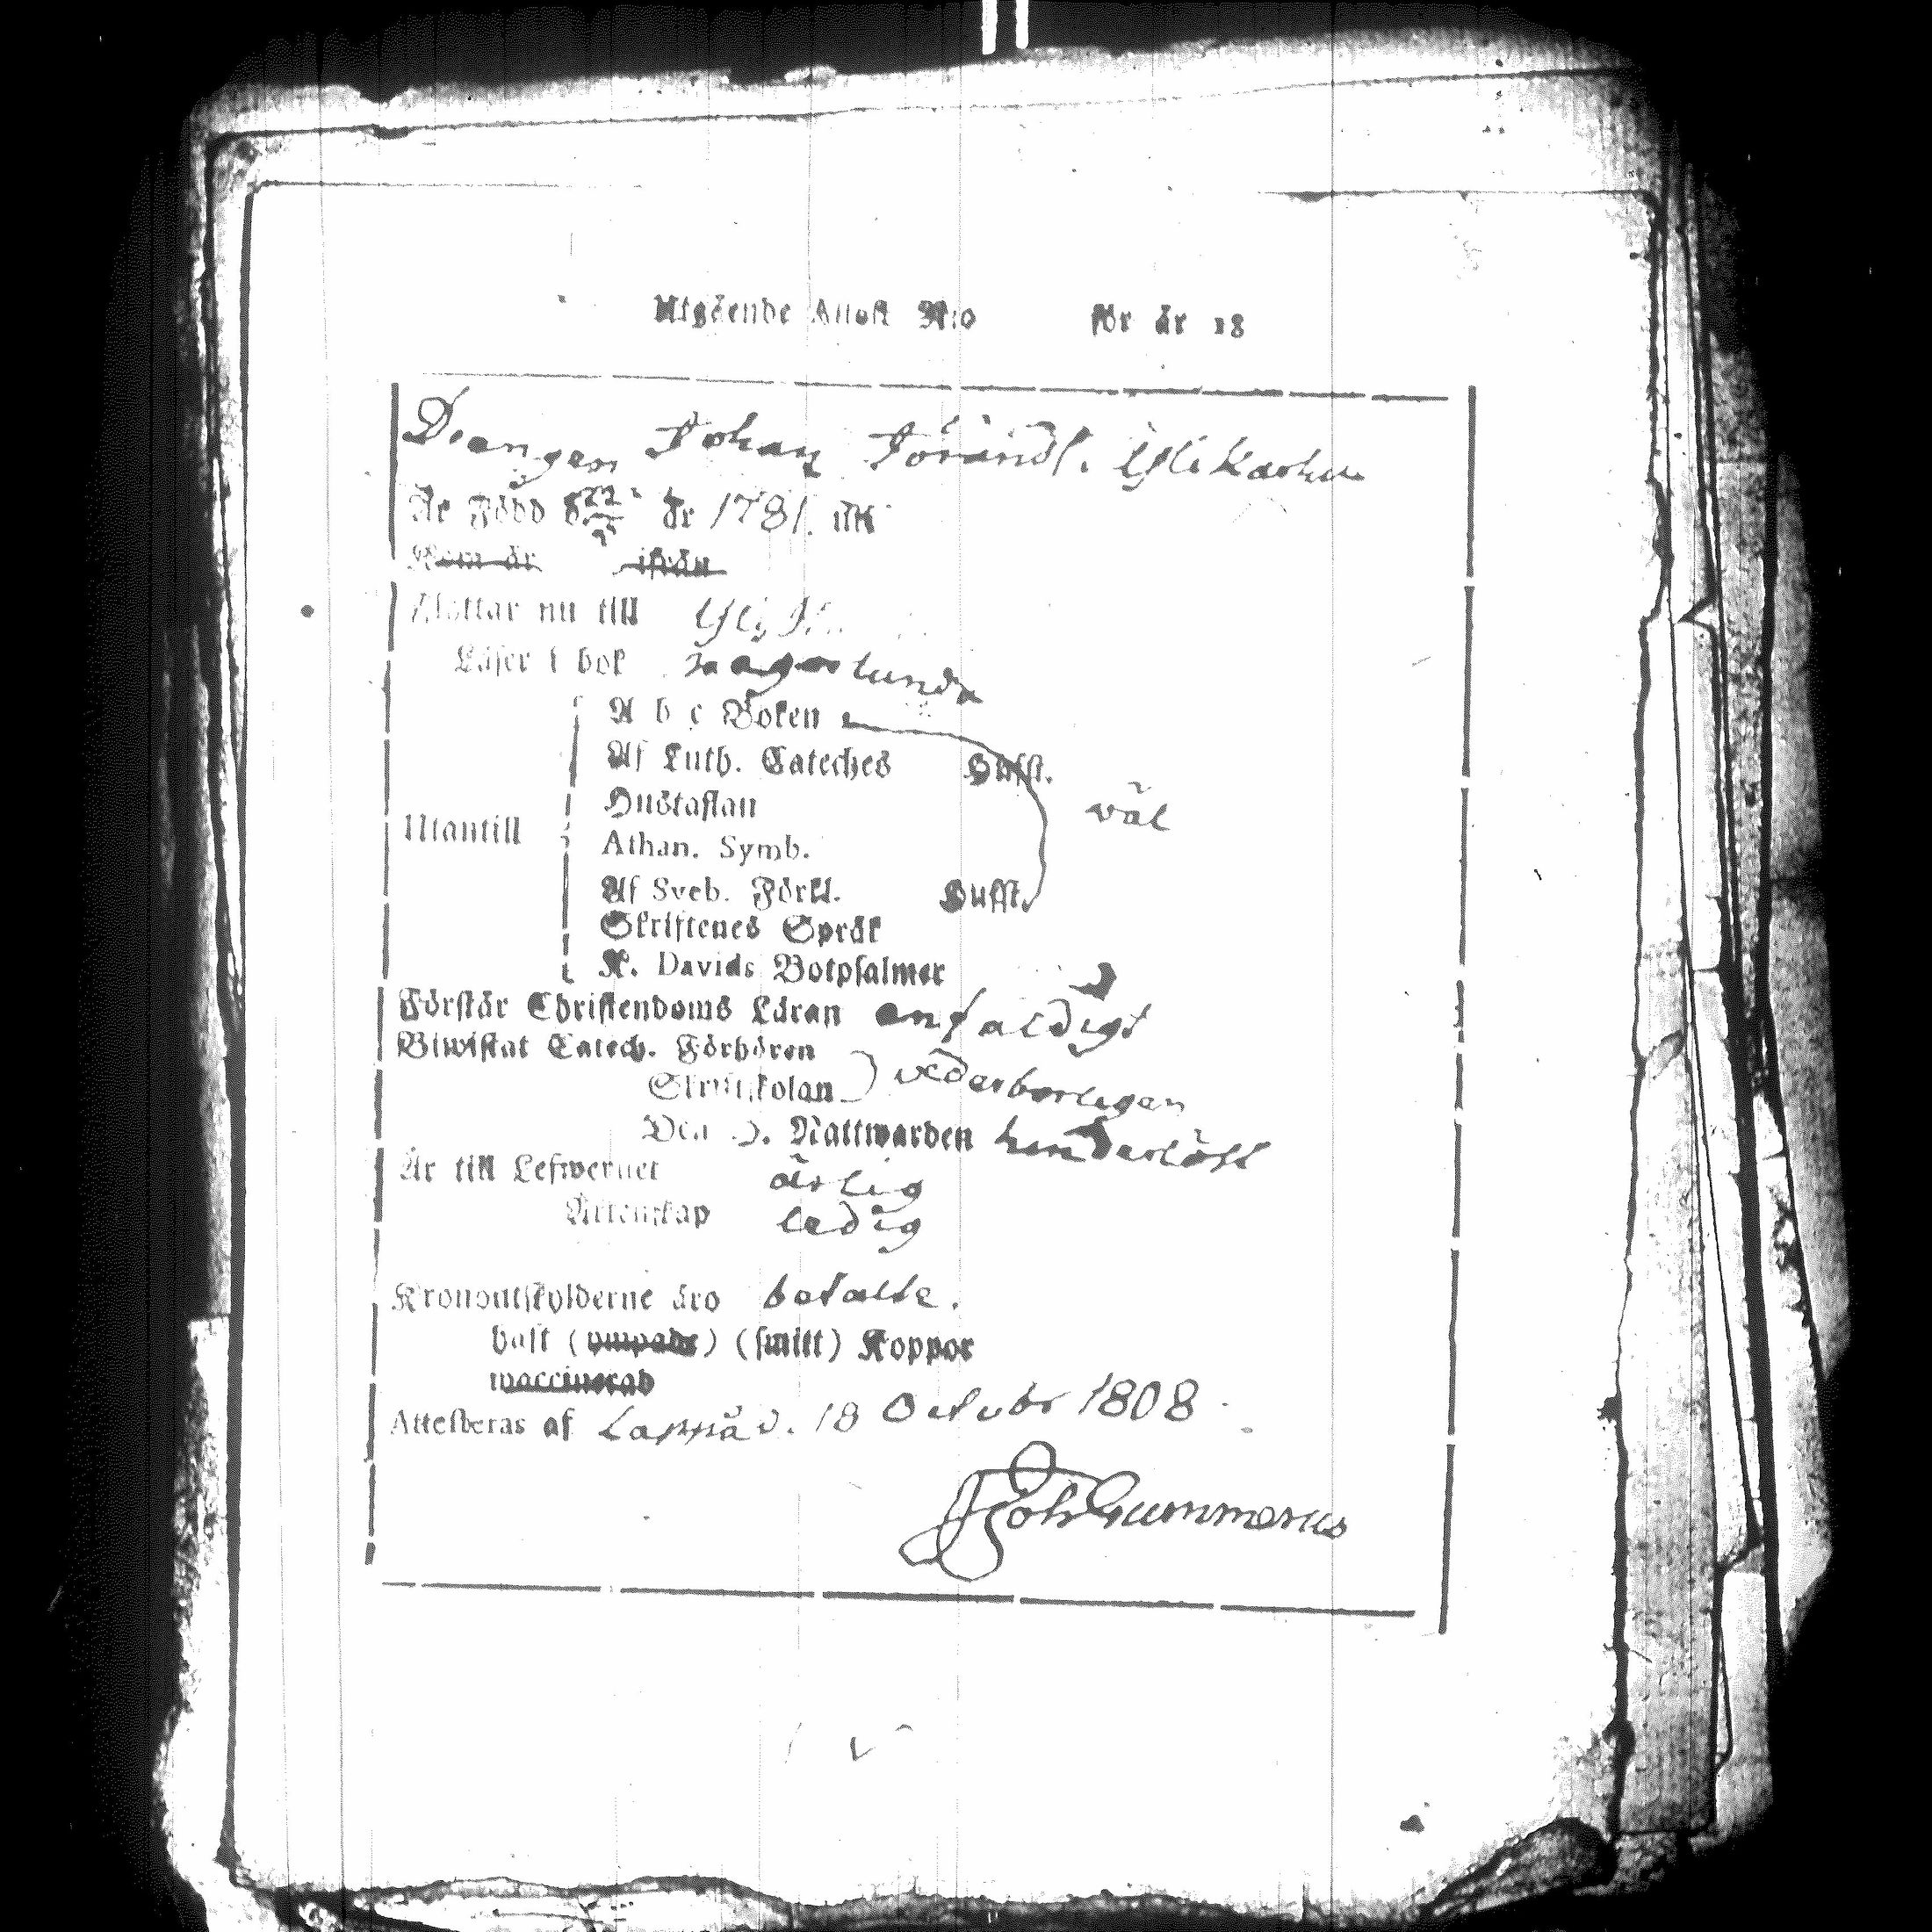 Utgående Attest N:o för år 18
Drängen Johan Jöransf. Ylikarhu
Är Född d. 22/9 år 1781. uti
Kom är ifrån
Flyttar nu till
Läser i bok någorlunda
A b c Boken
Af Luth. Cateches Hufst.
Hustaflan väl
Utantill
Athan. Symb.
Af Sveb. Förkl. Hufst.
Skriftenes Språk
K. Davids Botpsalmer
Förstår Christendoms Läran enfaldigt
Biwistat Catech. Förhören
Skriftskolan vederbörligen
Den H. Nattwarden hinderlöst
Är till Lefwernet ärlig
Äktenskap ledig
Kronoutskylderne äro betalte.
haft (ympade) (smitt) Koppor
waccinerad
Attesteras af Lappäj. 18 Octobr 1808
Joh Gummerus